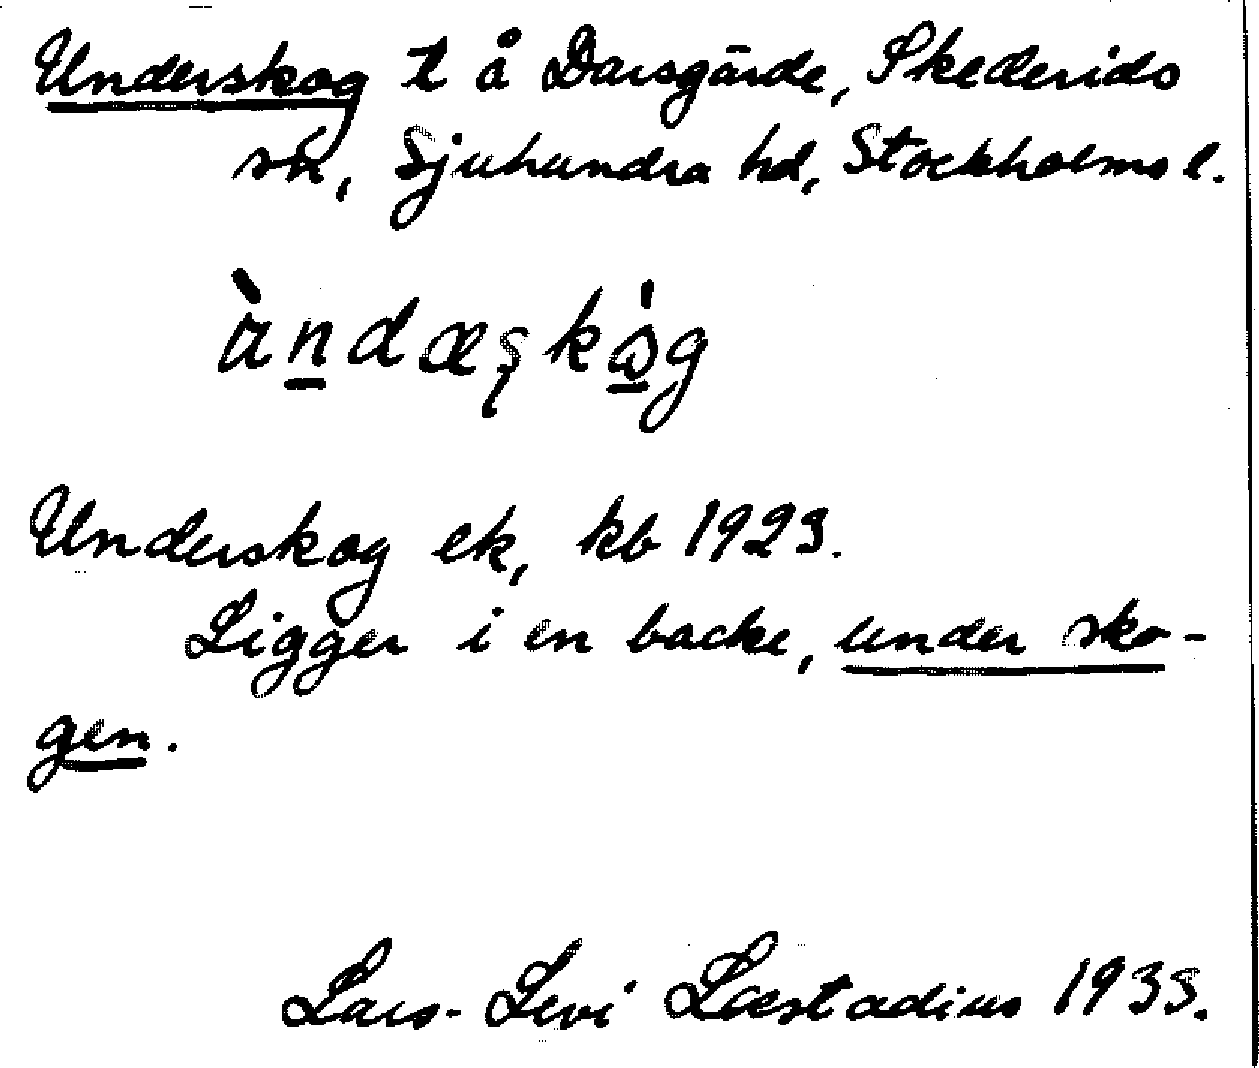 Underskog t å Darsgärde, Skederids
sn, Sjuhundra hd, Stockholms l.
Underskog ek, kb 1923.
Ligger i en backe, under sko-
gen.
Lars-Levi Læstadius 1935.